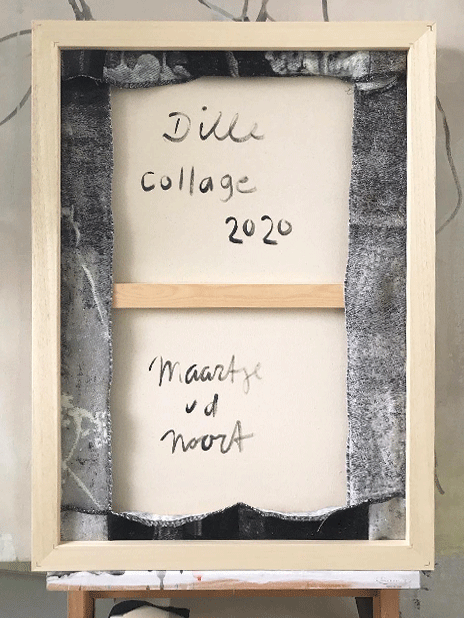 Dille
collage
2020
Maartje
vd
Noort